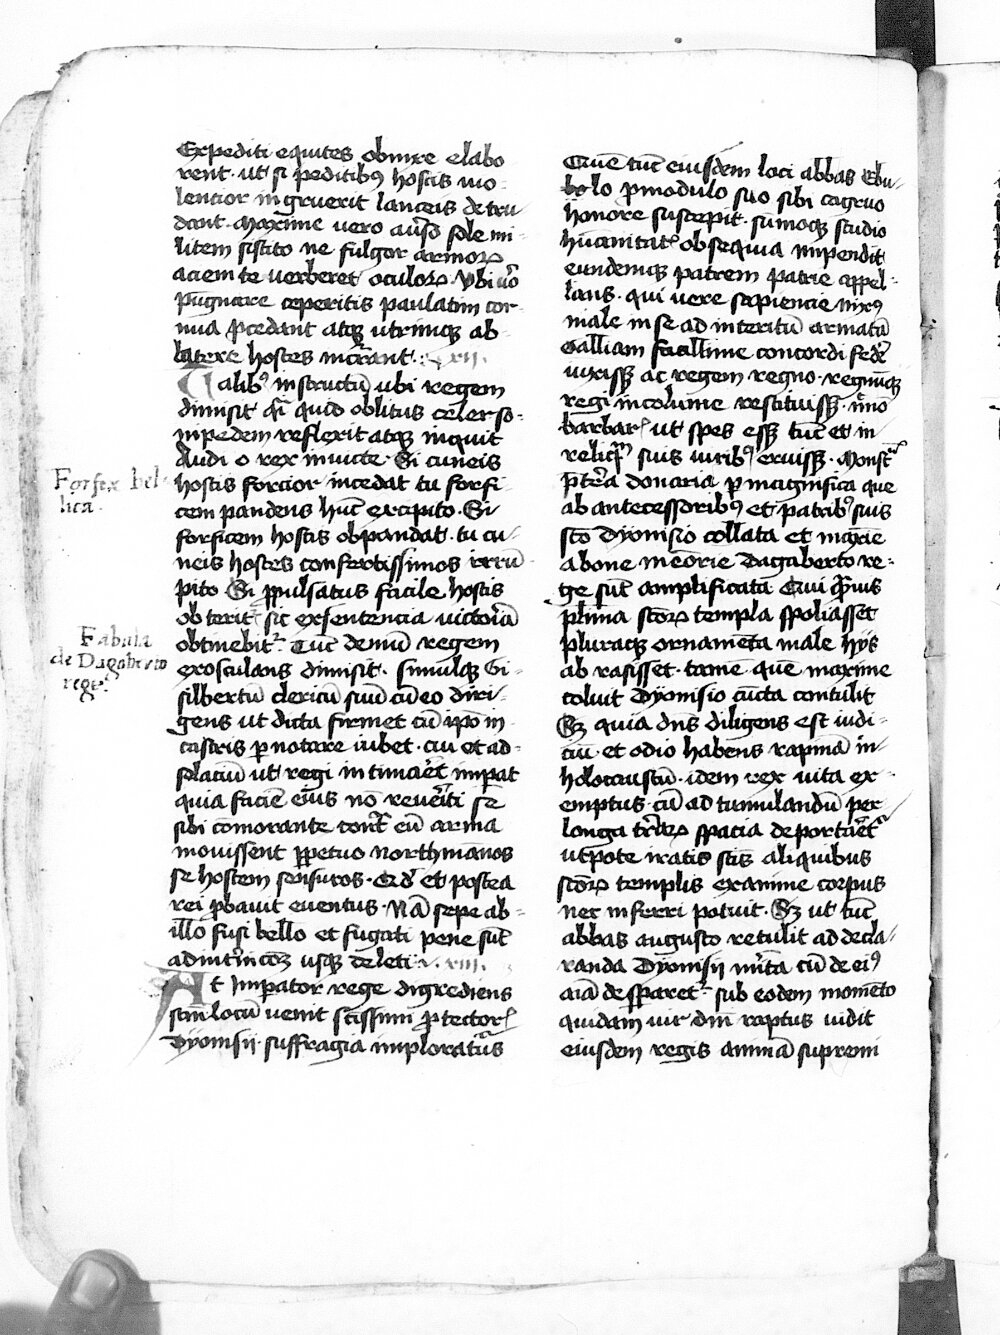 Expediti equites obnixe elabo
rent. ut si peditibꝰ hostis uio-
lencior ingruerit lanceis detru
dant. Maxime uero auſo sole mi-
litem sistito ne fulgor armoꝝ
aciem te uerberet oculoꝝ. Vbi ūo
pugnare ceperitis paulatim cor-
nua ꝓcedant atqꝫ utrimqꝫ ab-
latere hostes incurant. xii.
Talibꝰ instructū ubi regem
dimisit qͣi quid oblitus celer so-
nipedem reflexit atqꝫ inquit
Audi o rex inuicte. Si cuneis
hostis forcior incedat tu forfi-
cem pandens hūc excipito. Si
forficem hostis obpandat. tu cu-
neis hostes confertissimos irru-
pito Si ꝓpulsatus facile hostis
obterit. sic exsentencia uictoriā
obtinebitᷣ. Tūc demū regem
exosculans dimisit. simulqꝫ Gi-
silbertū clericū suū cū eo diri-
gens ut dicta firmet cū ip̄o in
castris ꝑnotare iubet. cui et ad-
solaciū ut regi intimaret impat
quia faciē eius nō reueriti se
sibi cōmorante contͣ eū arma
mouissent ꝑpetuo northmānos
se hostem sensuros. Qd̄ et postea
rei ꝓbauit euentus. Nā sepe ab-
illo fusi bello et fugati pene sūt
ad int̄nicōꝫ usqꝫ deleti. xiii.
At Imꝑator rege digrediens
scīm locū uenit scīssimi ꝓtector
Dyonisii suffragia imploraturus
Quē tūc eiusdem loci abbas Ebu-
lo ꝓmodulo suo sibi cōgruo
honore suscepit. sūmoqꝫ studio
hūanitatꝭ obsequia impendit
eundemqꝫ patrem patrie appel-
lans. qui uere sapiencie nixꝰ
male inse ad interitū armatā
Galliam facillime concordi fedꝰe
iunxissꝫ ac regem regno. regnūqꝫ
regi incolume restituissꝫ. īmo
barbarꝭ ut spes essꝫ tūc et in
reliqͣm suis iuribꝰ eruissꝫ. Monstͣt
p̄t̄ea donaria ꝑmagnifica que
ab antecessoribꝰ et patribꝰ suis
scō Dyonisio collata et maxīe
abone memorie Dagaberto re-
ge sūt amplificata Qui qͣmuis
plurīa scōꝝ templa spoliasset
pluraqꝫ ornamēta male hijs
ab rasisset. tamē que maxime
coluit Dyonisio cūcta contulit
Sꝫ quia dn̄s diligens est iudi-
ciū. et odio habens rapinā in-
holocaustū. idem rex uita ex-
emptus cū ad tumulandū per
longa tr̄aꝝ spatia deportaretᷣ
utpote iratis scīs aliquibus
scōꝝ templis exanime corpus
nec inferri potuit. Sꝫ ut tūc
abbas augusto retulit ad decla-
randa Dyonisii mīta cū de eiꝰ
aīa desꝑaretᷣ. sub eodem momēto
quidam uir dīn raptus uidit
eiusdem regis animā supremi
Forfex bel-
lica.
Fabula
de Dagaberto
rege.